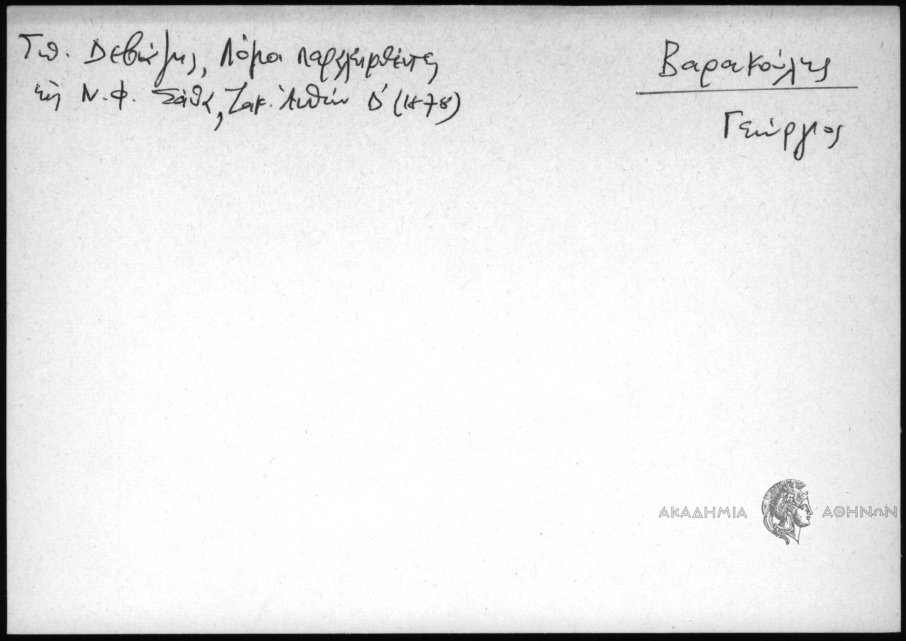 Σπ. Δεβιάζης, Λόγιοι παραλειφθέντες
τῆς Ν. Φ. Σάθα, Ζακ. Ἀνθών Δ' (1878)
Βαρακούλης
Γεώργιος
ΑΚΑΔΗΜΙΑ ΑΘΗΝΩΝ